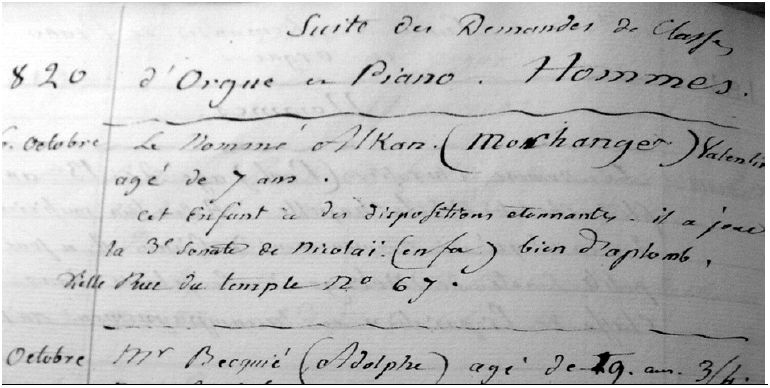 Suite des Demandes de Classes
820 d'Orgue et Piano. Hommes.
6. Octobre Le Nommé Alkan. (Morhange) Valentin
agé de 7 ans
Cet Enfant a des dispositions etonnantes. il a joué
la 3e Sonate de Nicolaï. (en fa) bien d'aplomb.
Vielle Rue du temple No 67.
Octobre Mr Becquié (Adolphe) agé de 19. ans. 3/4.